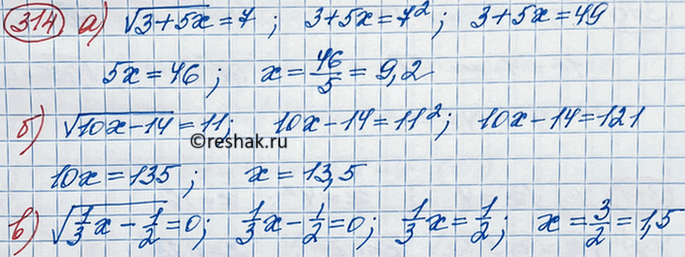 314 а) √(3+5x) = 7 ; 3+5x=7² ; 3+5x=49
5x=46 ; x=46/5=9,2
б) √(10x-14)=11; 10x-14=11²; 10x-14=121
©reshak.ru
10x=135 ; x=13,5
в) √(1/3x-1/2)=0; 1/3x-1/2=0; 1/3x=1/2; x=3/2=1,5